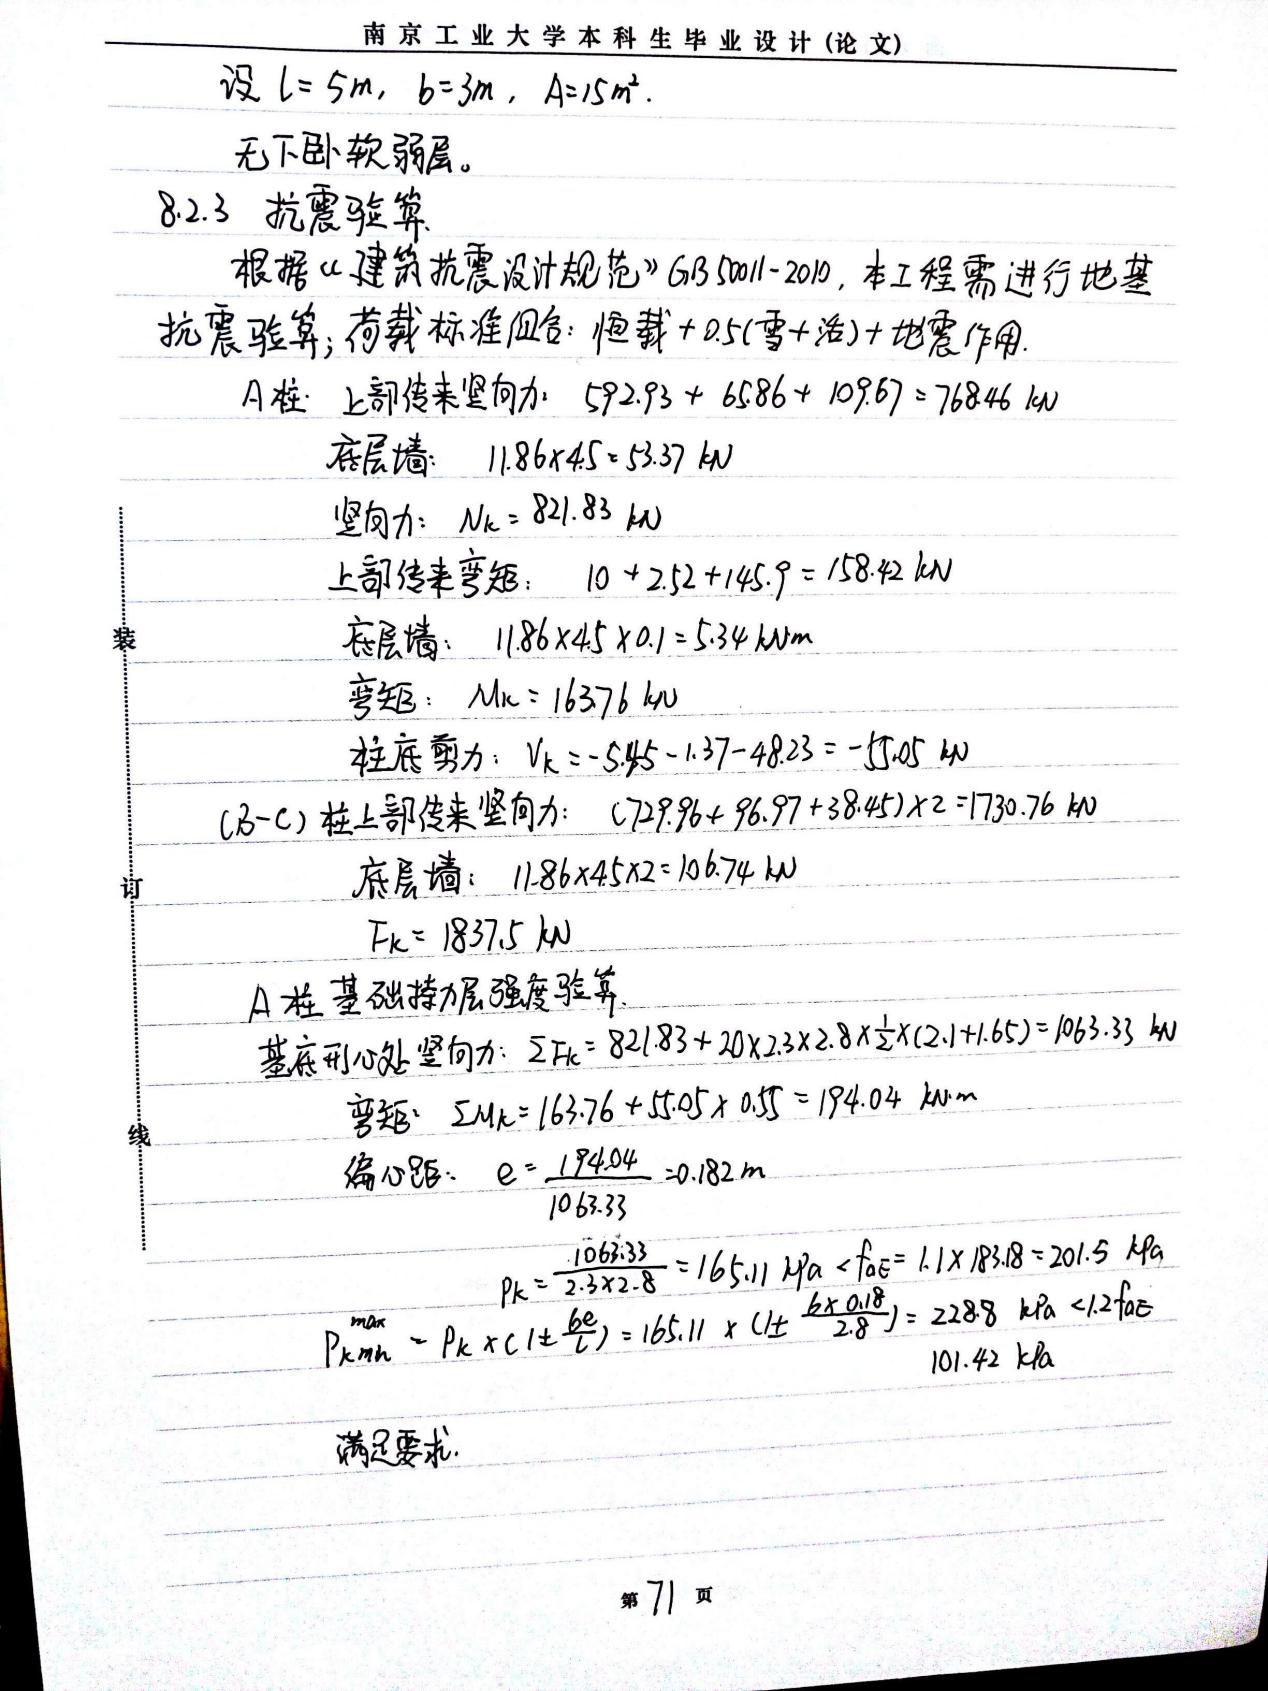 南京工业大学本科生毕业设计(论文)
设 l=5m, b=3m, A=15m².
无下卧软弱层。
8.2.3 抗震验算.
根据《建筑抗震设计规范》GB50011-2010,本工程需进行地基
抗震验算;荷载标准组合:恒载+0.5(雪+活)+地震作用.
A柱. 上部传来竖向力: 592.93+65.86+109.67=768.46 kN
底层墙: 11.86×4.5=53.37 kN
竖向力: Nk=821.83 kN
上部传来弯矩: 10+2.52+145.9=158.42 kN
底层墙: 11.86×4.5×0.1=5.34 kN·m
弯矩: Mk=163.76 kN
柱底剪力: Vk=-5.45-1.37-48.23=-55.05 kN
(B-C)柱上部传来竖向力: (729.96+96.97+38.45)×2=1730.76 kN
底层墙: 11.86×4.5×2=106.74 kN
Fk=1837.5 kN
A柱基础持力层强度验算.
基底形心处竖向力: ΣFk=821.83+20×2.3×2.8×1/2×(2.1+1.65)=1063.33 kN
弯矩: ΣMk=163.76+55.05×0.55=194.04 kN·m
偏心距: e=194.04/1063.33=0.182m
Pk=1063.33/2.3×2.8=165.11 kPa<faE=1.1×183.18=201.5 kPa
Pk max min = Pk×(1±6e/l)=165.11×(1±6×0.18/2.8)=228.8 kPa<1.2faE
101.42 kPa
满足要求.
装
订
线
第71页